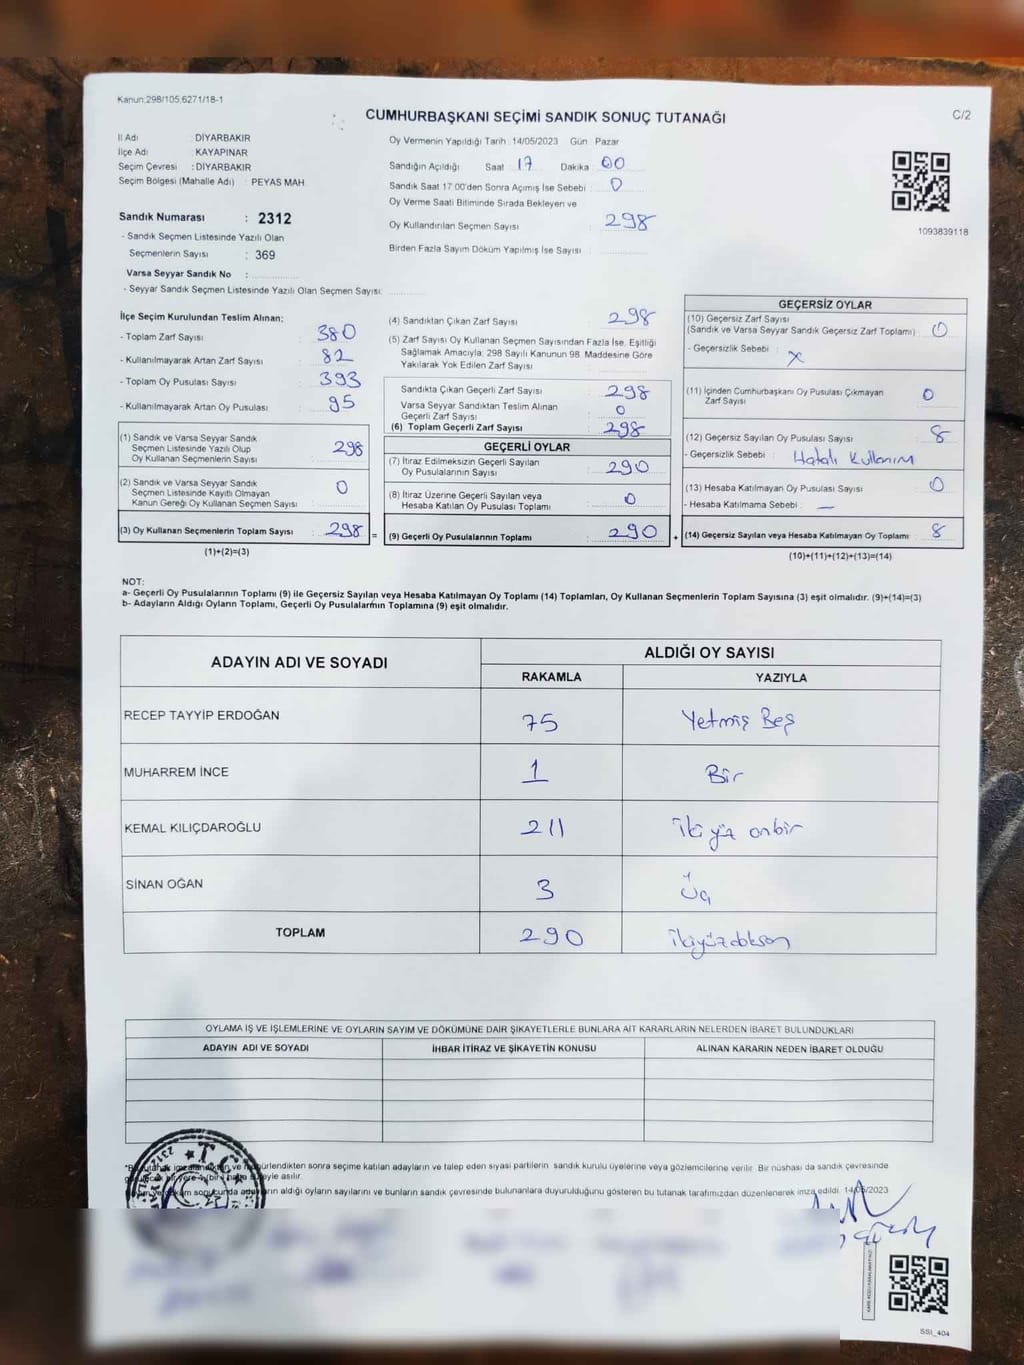 Kanun:298/105,6271/18-1
CUMHURBAŞKANI SEÇİMİ SANDIK SONUÇ TUTANAĞI
C/2
İl Adı : DİYARBAKIR
İlçe Adı : KAYAPINAR
Seçim Çevresi : DİYARBAKIR
Seçim Bölgesi (Mahalle Adı) : PEYAS MAH.
Oy Vermenin Yapıldığı Tarih :14/05/2023 Gün : Pazar
Sandığın Açıldığı Saat : 17 Dakika : 00
Sandık Saat 17:00'den Sonra Açımış İse Sebebi : 0
Oy Verme Saati Bitiminde Sırada Bekleyen ve
Oy Kullandırılan Seçmen Sayısı : 298
Birden Fazla Sayım Döküm Yapılmış İse Sayısı :
1093839118
Sandık Numarası : 2312
- Sandık Seçmen Listesinde Yazılı Olan
Seçmenlerin Sayısı : 369
Varsa Seyyar Sandık No :
- Seyyar Sandık Seçmen Listesinde Yazılı Olan Seçmen Sayısı:
İlçe Seçim Kurulundan Teslim Alınan;
- Toplam Zarf Sayısı : 380
- Kullanılmayarak Artan Zarf Sayısı : 82
- Toplam Oy Pusulası Sayısı : 393
- Kullanılmayarak Artan Oy Pusulası : 95
(1) Sandık ve Varsa Seyyar Sandık
Seçmen Listesinde Yazılı Olup
Oy Kullanan Seçmenlerin Sayısı : 298
(2) Sandık ve Varsa Seyyar Sandık
Seçmen Listesinde Kayıtlı Olmayan
Kanun Gereği Oy Kullanan Seçmen Sayısı : 0
(3) Oy Kullanan Seçmenlerin Toplam Sayısı : 298 =
(1)+(2)=(3)
(4) Sandıktan Çıkan Zarf Sayısı : 298
(5) Zarf Sayısı Oy Kullanan Seçmen Sayısından Fazla İse, Eşitliği
Sağlamak Amacıyla; 298 Sayılı Kanunun 98. Maddesine Göre
Yakılarak Yok Edilen Zarf Sayısı :
Sandıkta Çıkan Geçerli Zarf Sayısı : 298
Varsa Seyyar Sandıktan Teslim Alınan
Geçerli Zarf Sayısı : 0
(6) Toplam Geçerli Zarf Sayısı : 298
GEÇERLİ OYLAR
(7) İtiraz Edilmeksizin Geçerli Sayılan
Oy Pusulalarının Sayısı : 290
(8) İtiraz Üzerine Geçerli Sayılan veya
Hesaba Katılan Oy Pusulası Toplamı : 0
(9) Geçerli Oy Pusulalarının Toplamı : 290 +
GEÇERSİZ OYLAR
(10) Geçersiz Zarf Sayısı
(Sandık ve Varsa Seyyar Sandık Geçersiz Zarf Toplamı) : 0
- Geçersizlik Sebebi : X
(11) İçinden Cumhurbaşkanı Oy Pusulası Çıkmayan
Zarf Sayısı : 0
(12) Geçersiz Sayılan Oy Pusulası Sayısı : 8
- Geçersizlik Sebebi : Hatalı Kullanım
(13) Hesaba Katılmayan Oy Pusulası Sayısı : 0
- Hesaba Katılmama Sebebi : —
(14) Geçersiz Sayılan veya Hesaba Katılmayan Oy Toplamı : 8
(10)+(11)+(12)+(13)=(14)
NOT:
a- Geçerli Oy Pusulalarının Toplamı (9) ile Geçersiz Sayılan veya Hesaba Katılmayan Oy Toplamı (14) Toplamları, Oy Kullanan Seçmenlerin Toplam Sayısına (3) eşit olmalıdır. (9)+(14)=(3)
b- Adayların Aldığı Oyların Toplamı, Geçerli Oy Pusulalarının Toplamına (9) eşit olmalıdır.
ADAYIN ADI VE SOYADI
ALDIĞI OY SAYISI
RAKAMLA YAZIYLA
RECEP TAYYİP ERDOĞAN 75 Yetmiş Beş
MUHARREM İNCE 1 Bir
KEMAL KILIÇDAROĞLU 211 İkiyüz onbir
SİNAN OĞAN 3 Üç
TOPLAM 290 İkiyüzdoksan
OYLAMA İŞ VE İŞLEMLERİNE VE OYLARIN SAYIM VE DÖKÜMÜNE DAİR ŞİKAYETLERLE BUNLARA AİT KARARLARIN NELERDEN İBARET BULUNDUKLARI
ADAYIN ADI VE SOYADI İHBAR İTİRAZ VE ŞİKAYETİN KONUSU ALINAN KARARIN NEDEN İBARET OLDUĞU
imzalandıktan ve mühürlendikten sonra seçime katılan adayların ve talep eden siyasi partilerin sandık kurulu üyelerine veya gözlemcilerine verilir. Bir nüshası da sandık çevresinde
asılır.
sonucunda adayların aldığı oyların sayılarını ve bunların sandık çevresinde bulunanlara duyurulduğunu gösteren bu tutanak tarafımızdan düzenlenerek imza edildi. 14/05/2023
T.C.
SSI_404